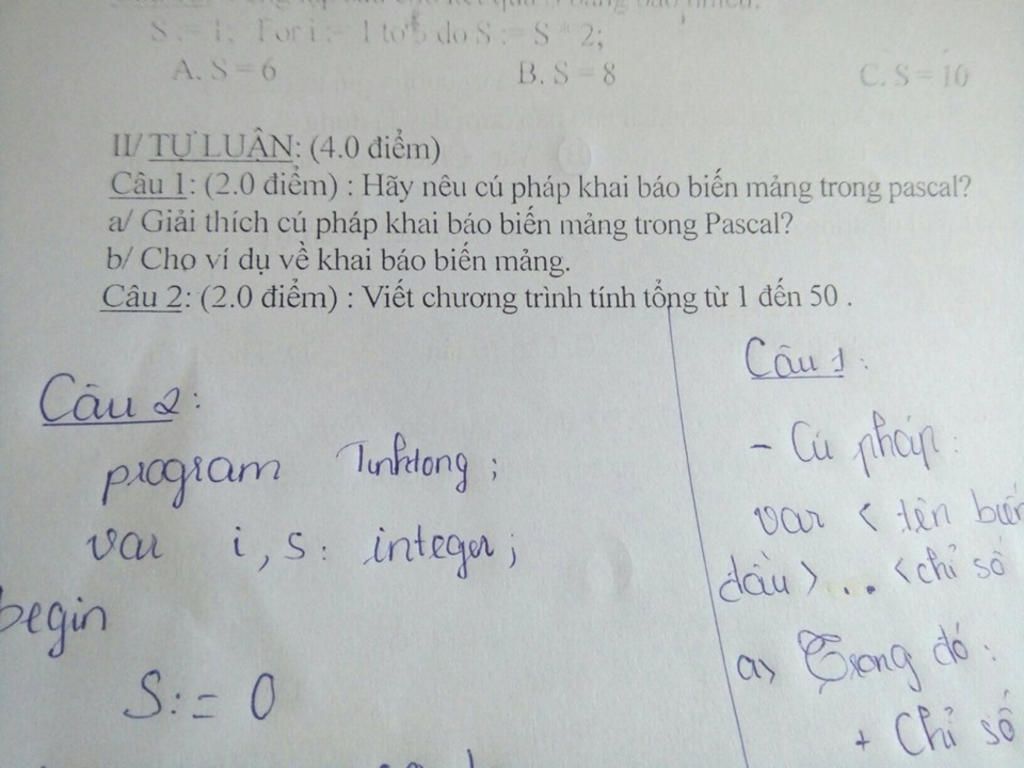 S := 1; For i := 1 to 5 do S := S * 2;
A. S = 6 B. S = 8 C. S = 10
II/ TỰ LUẬN: (4.0 điểm)
Câu 1: (2.0 điểm) : Hãy nêu cú pháp khai báo biến mảng trong pascal?
a/ Giải thích cú pháp khai báo biến mảng trong Pascal?
b/ Cho ví dụ về khai báo biến mảng.
Câu 2: (2.0 điểm) : Viết chương trình tính tổng từ 1 đến 50 .
Câu 2:
program Tinhtong ;
var i, s : integer ;
begin
S := 0
Câu 1 :
- Cú pháp :
var < tên biến
đầu > .. < chỉ số
a> Trong đó :
+ Chỉ số